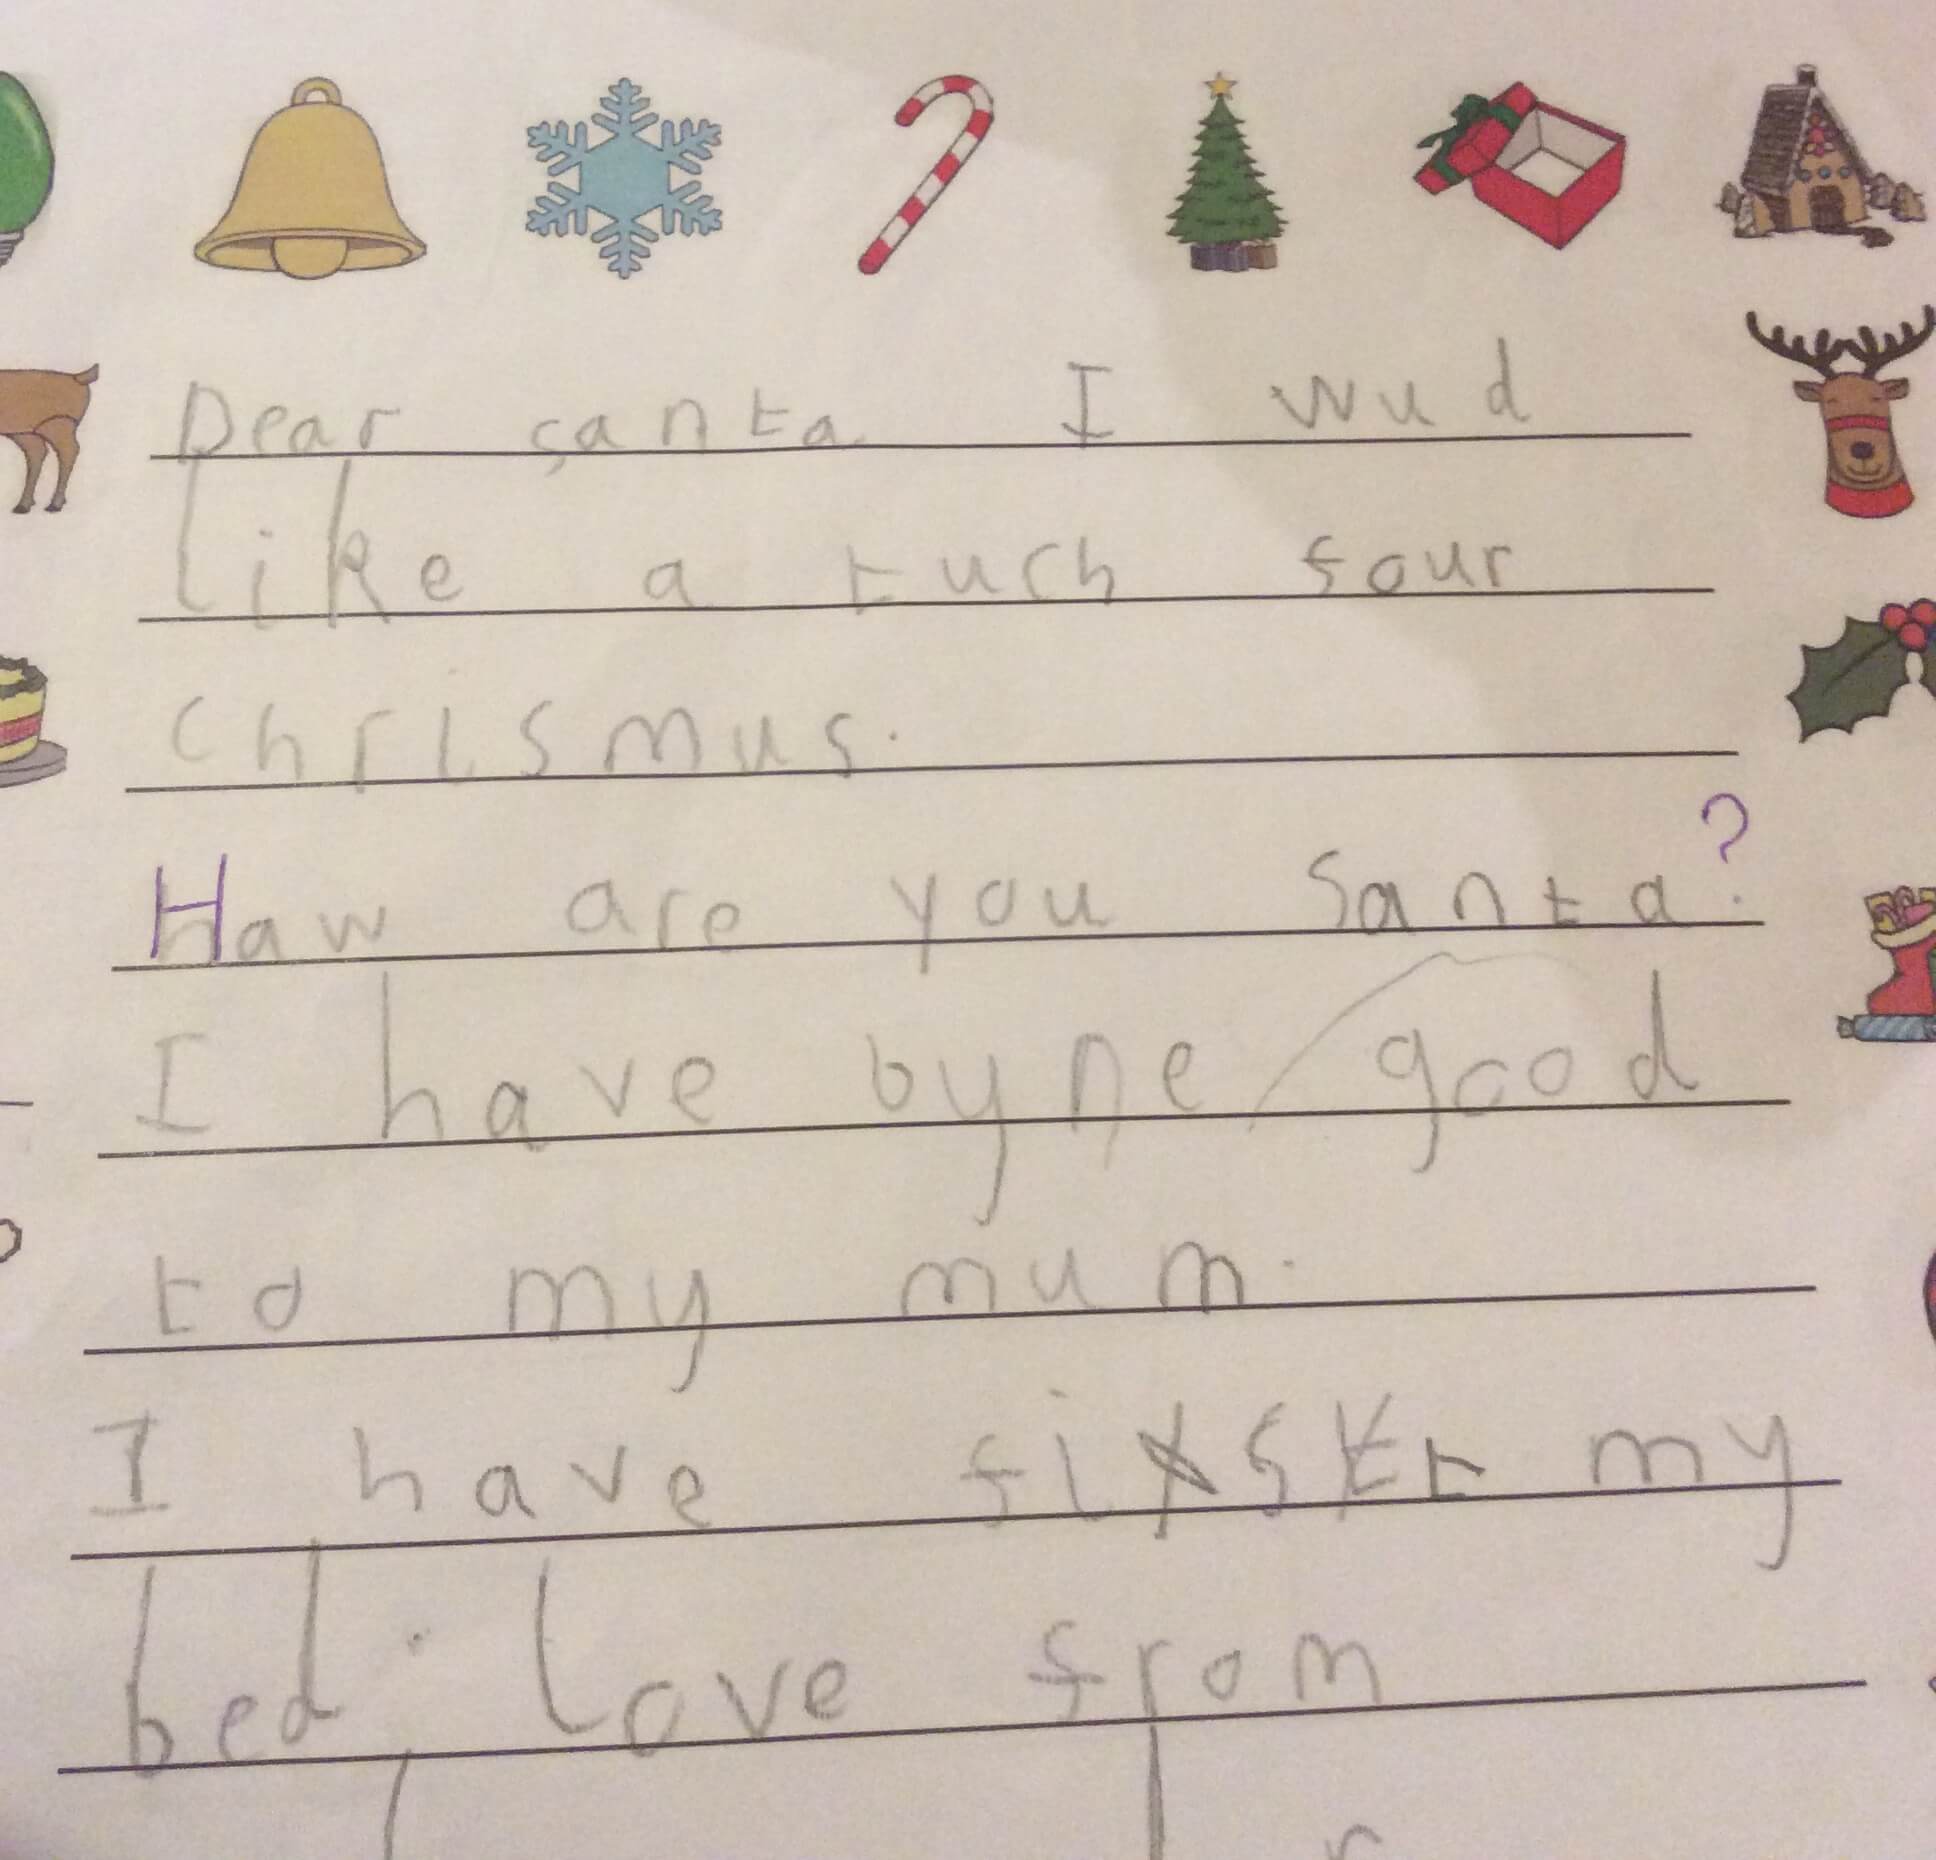 Dear santa I wud
like a tuch four
chrismus.
Haw are you Santa?
I have byne good
to my mum.
I have my
bed. Love from